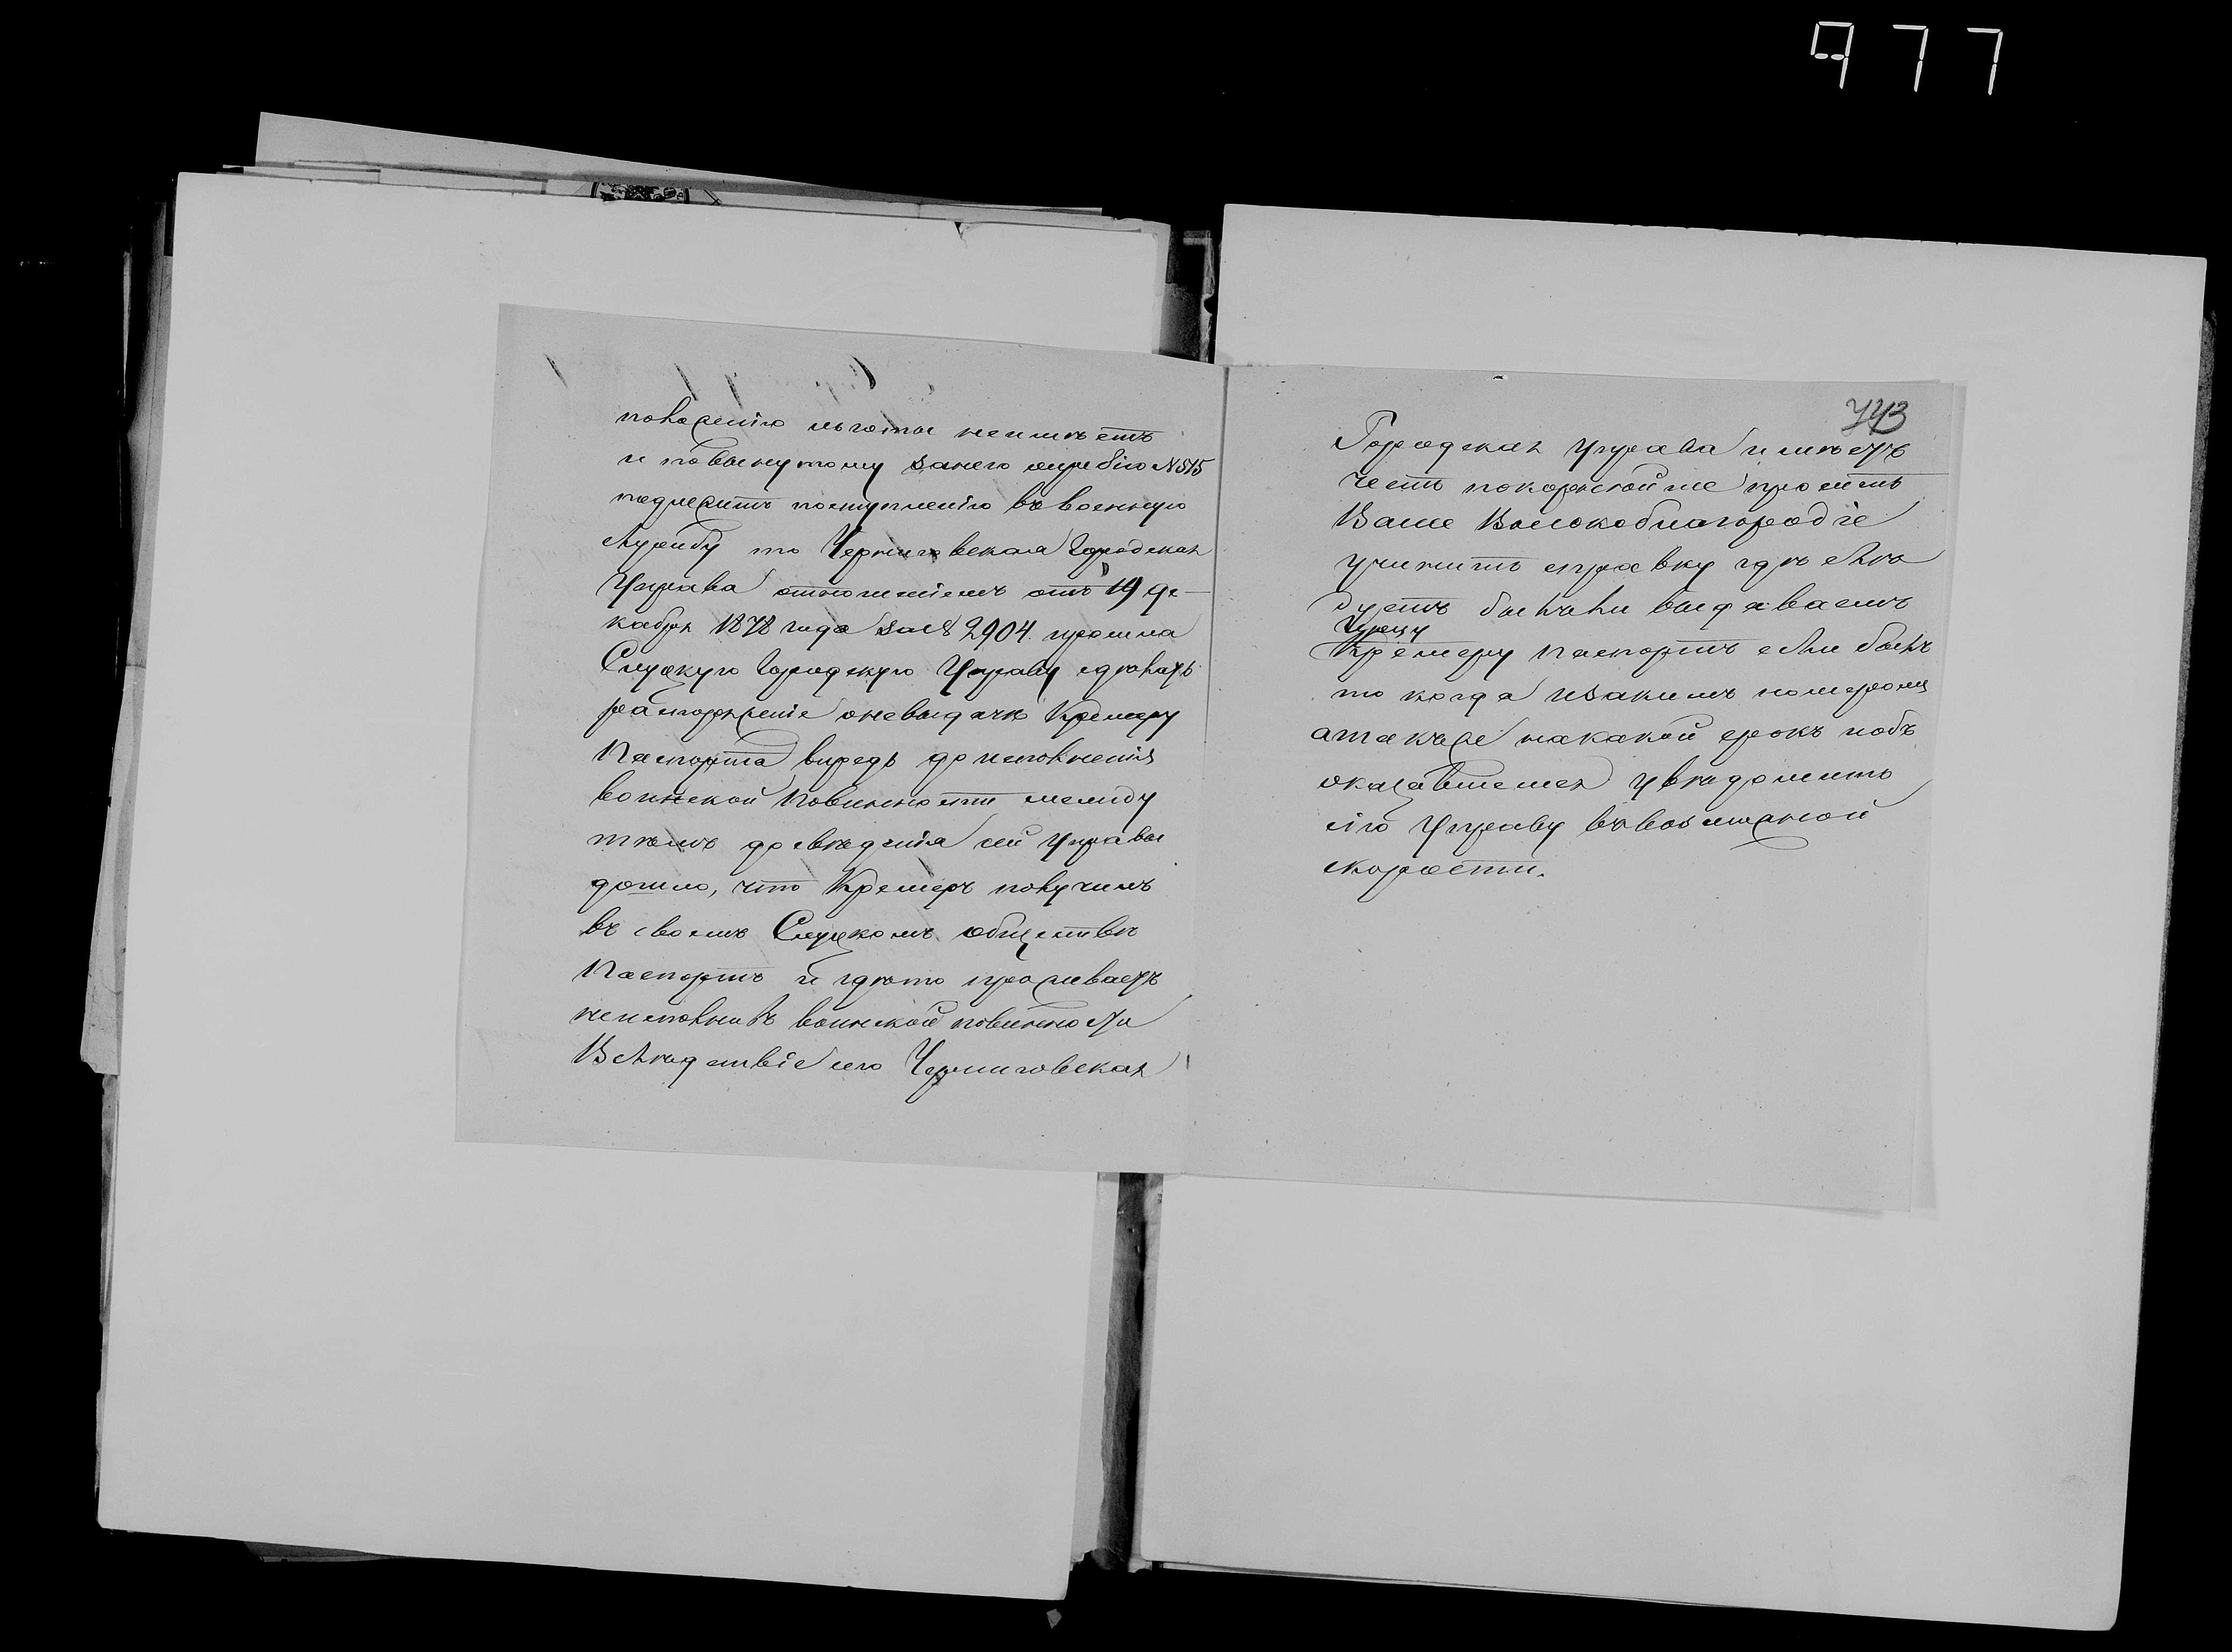 977
положенію льготы неимѣетъ
и повынутому занего жребію № 515
подлежитъ поступленію въ военную
службу то Черниговская городская
Управа отношеніемъ отъ 19 де-
кабря 1878 года за № 2904. просила
Слуцкую городскую Управу сдѣлать
распоряженіе оневыдачѣ Кремеру
Паспорта впредь до исполненія
воинской повинности между
тѣмъ до свѣдѣнія сей Управы
дошло, что Кремеръ получилъ
въ своемъ Слуцкомъ обществѣ
Паспортъ и гдѣто проживаетъ
неисполнивъ воинской повинности
Вслѣдствіе чего Черниговская
743
Городская Управа имѣетъ
честь покорнѣйше просить
Ваше Высокоблагородіе
учинить справку гдѣ слѣ
дуетъ былъли выдаваемъ
Кремеру паспортъ если былъ
то когда изакимъ номеромъ
атакже накакой срокъ иобъ
оказавшемся увѣдомить
сію Управу въвозможной
скорости.